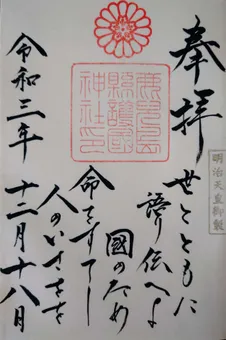 奉拝
明治天皇御製
世とともに
語り伝へよ
國のため
命をすてし
人のいさをを
鹿兒島
縣護國
神社印
令和三年 十二月十八日